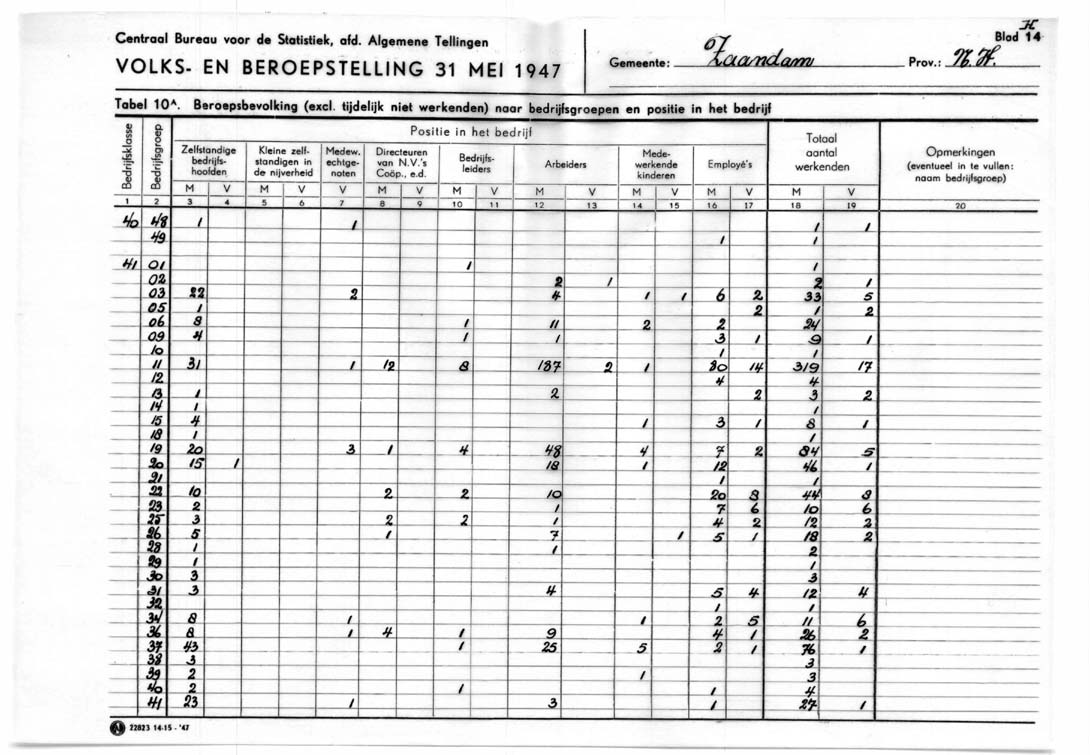 H
Blad 14
Centraal Bureau voor de Statistiek, afd. Algemene Tellingen
VOLKS- EN BEROEPSTELLING 31 MEI 1947
Gemeente: Zaandam Prov.: N.H.
Tabel 10A. Beroepsbevolking (excl. tijdelijk niet werkenden) naar bedrijfsgroepen en positie in het bedrijf
Bedrijfsklasse Bedrijfsgroep Positie in het bedrijf Totaal aantal werkenden Opmerkingen (eventueel in te vullen: naam bedrijfsgroep)
Zelfstandige bedrijfshoofden Kleine zelfstandigen in de nijverheid Medew. echtgenoten Directeuren van N.V.'s Coöp., e.d. Bedrijfsleiders Arbeiders Medewerkende kinderen Employé's
M V M V V M V M V M V M V M V M V
1 2 3 4 5 6 7 8 9 10 11 12 13 14 15 16 17 18 19 20
40 48 1 1 1 1
49 1 1
41 01 1 1
02 2 1 2 1
03 22 2 4 1 1 6 2 33 5
05 1 2 1 2
06 8 1 11 2 2 24
09 4 1 1 3 1 9 1
10 1 1
11 31 1 12 8 187 2 1 80 14 319 17
12 4 4
13 1 2 2 3 2
14 1 1
15 4 1 3 1 8 1
18 1 1
19 20 3 1 4 48 4 7 2 84 5
20 15 1 18 1 12 46 1
21 1 1
22 10 2 2 10 20 8 44 8
23 2 1 7 6 10 6
25 3 2 2 1 4 2 12 2
26 5 1 7 1 5 1 18 2
28 1 1 2
29 1 1
30 3 3
31 3 4 5 4 12 4
32 1 1
34 8 1 1 2 5 11 6
36 8 1 4 1 9 4 1 26 2
37 43 1 25 5 2 1 76 1
38 3 3
39 2 1 3
40 2 1 1 4
41 23 1 3 1 27 1
22823 14-15 - '47